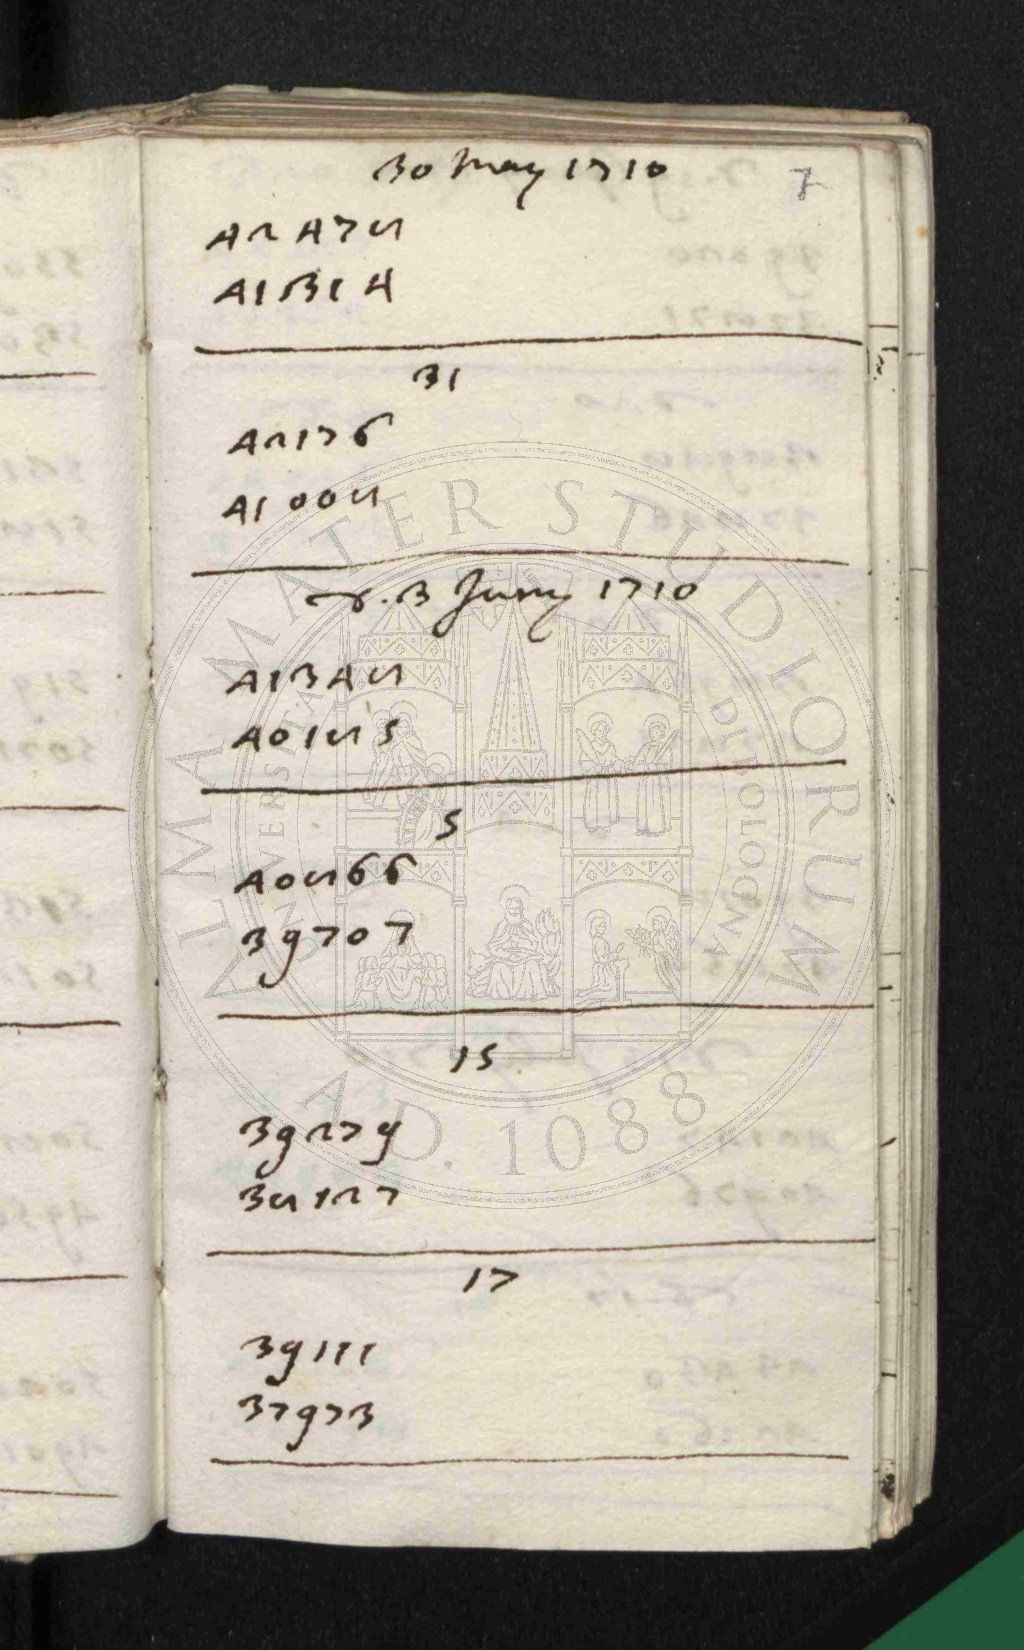 30 May 1710
7
42478
41314
31
42176
41008
3 Juny 1710
41348
40185
5
40866
39707
15
39279
38127
17
39111
37973
ALMA MATER STUDIORUM
UNIVERSITA DI BOLOGNA
A.D. 1088